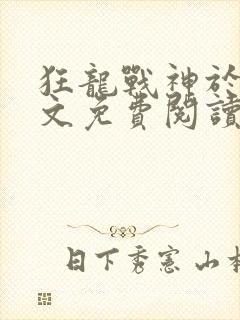 狂龍戰神於
文免費閱讀
日下秀憲 山本